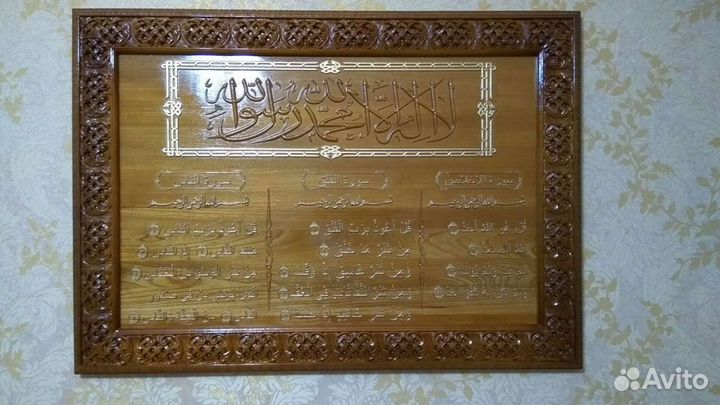 لا إله إلا الله محمد رسول الله
سورة الإخلاص
بسم الله الرحمن الرحيم
قُلْ هُوَ اللَّهُ أَحَدٌ
اللَّهُ الصَّمَدُ
سورة الفلق
بسم الله الرحمن الرحيم
قُلْ أَعُوذُ بِرَبِّ الْفَلَقِ
مِنْ شَرِّ مَا خَلَقَ
وَمِنْ شَرِّ غَاسِقٍ إِذَا وَقَبَ
وَمِنْ شَرِّ النَّفَّاثَاتِ فِي الْعُقَدِ
وَمِنْ شَرِّ حَاسِدٍ إِذَا حَسَدَ
سورة الناس
بسم الله الرحمن الرحيم
قُلْ أَعُوذُ بِرَبِّ النَّاسِ
مَلِكِ النَّاسِ إِلَٰهِ النَّاسِ
مِنْ شَرِّ الْوَسْوَاسِ الْخَنَّاسِ
Avito